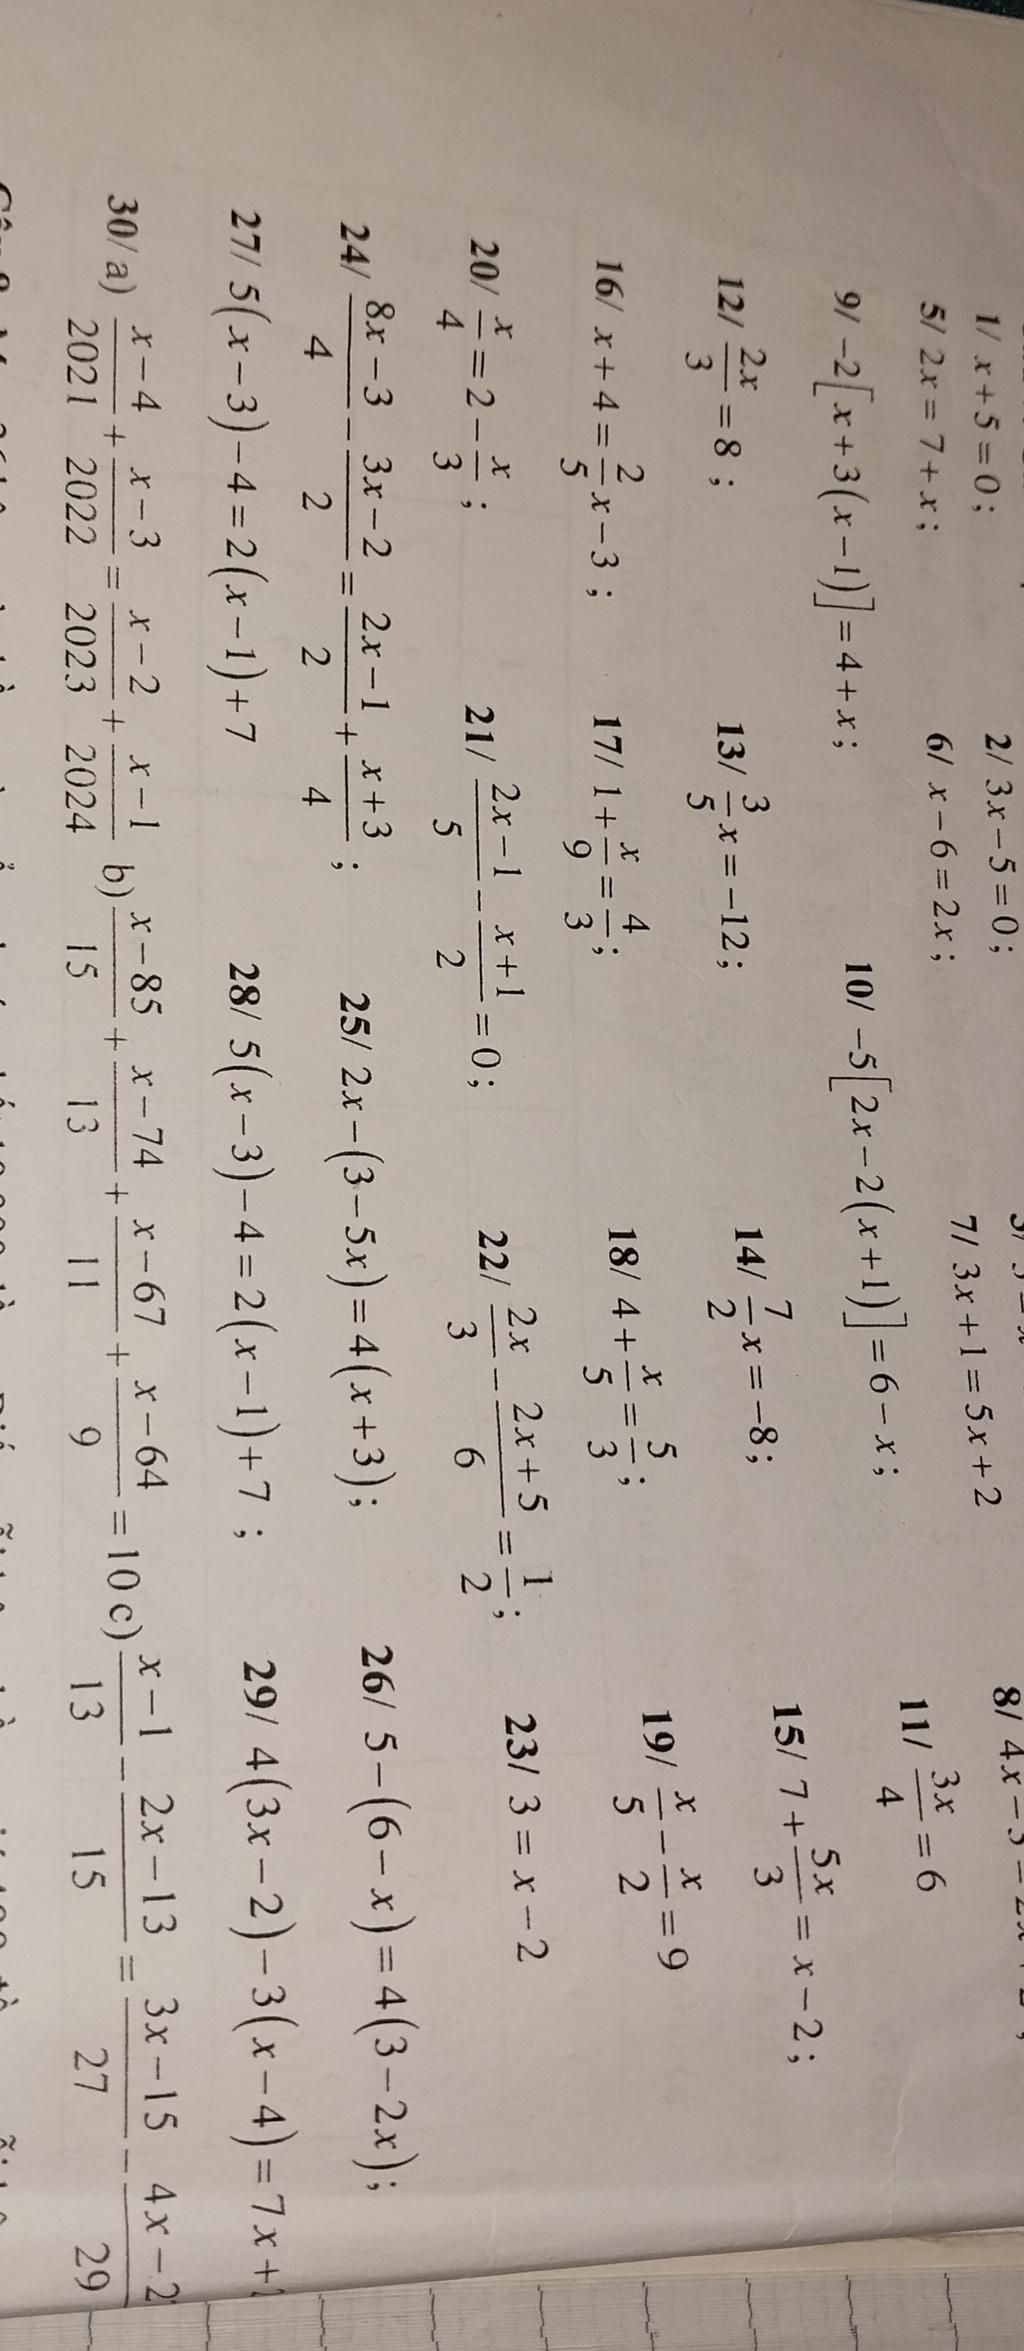 1/ x + 5 = 0; 2/ 3x − 5 = 0;
5/ 2x = 7 + x; 6/ x − 6 = 2x; 7/ 3x + 1 = 5x + 2 8/ 4x −
9/ −2[x + 3(x − 1)] = 4 + x; 10/ −5[2x − 2(x + 1)] = 6 − x; 11/ 3x/4 = 6
12/ 2x/3 = 8; 13/ 3/5 x = −12; 14/ 7/2 x = −8; 15/ 7 + 5x/3 = x − 2;
16/ x + 4 = 2/5 x − 3; 17/ 1 + x/9 = 4/3; 18/ 4 + x/5 = 5/3; 19/ x/5 − x/2 = 9
20/ x/4 = 2 − x/3; 21/ (2x − 1)/5 − (x + 1)/2 = 0; 22/ 2x/3 − (2x + 5)/6 = 1/2; 23/ 3 = x − 2
24/ (8x − 3)/4 − (3x − 2)/2 = (2x − 1)/2 + (x + 3)/4; 25/ 2x − (3 − 5x) = 4(x + 3); 26/ 5 − (6 − x) = 4(3 − 2x);
27/ 5(x − 3) − 4 = 2(x − 1) + 7 28/ 5(x − 3) − 4 = 2(x − 1) + 7; 29/ 4(3x − 2) − 3(x − 4) = 7x +
30/ a) (x − 4)/2021 + (x − 3)/2022 = (x − 2)/2023 + (x − 1)/2024 b) (x − 85)/15 + (x − 74)/13 + (x − 67)/11 + (x − 64)/9 = 10 c) (x − 1)/13 − (2x − 13)/15 = (3x − 15)/27 − (4x − 2)/29